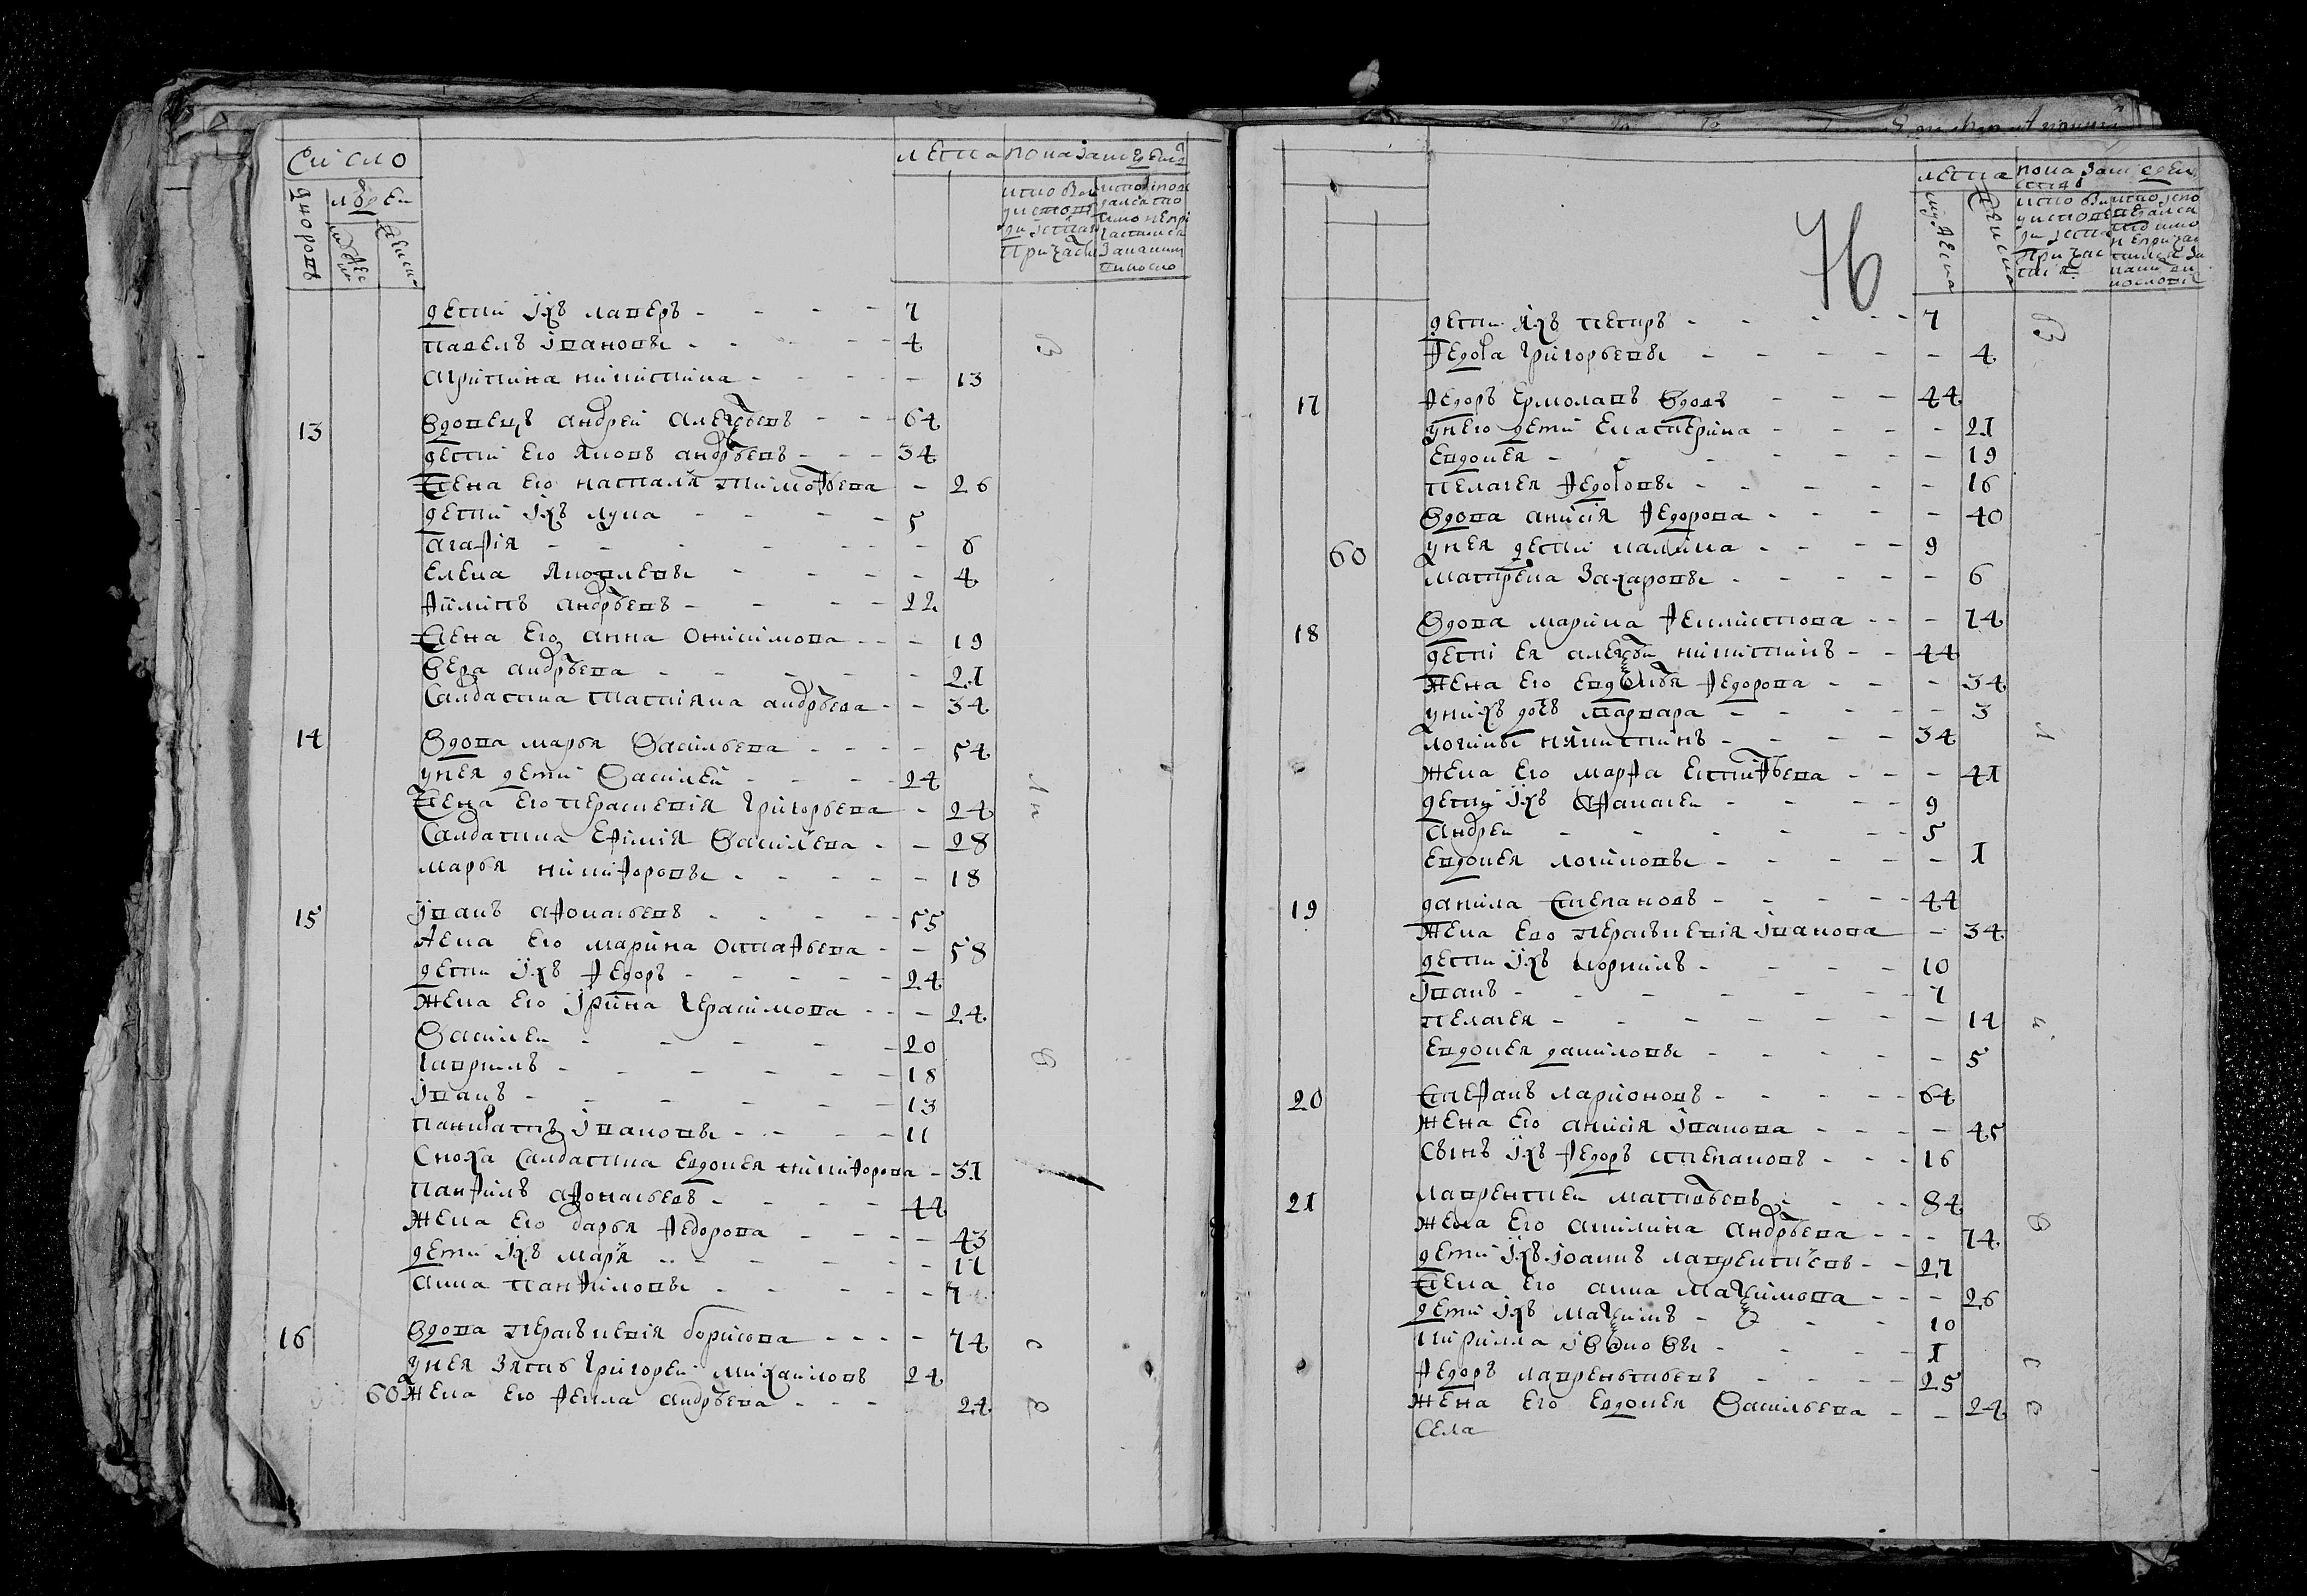 Число
дворовъ
людей
мужес
женск
Лета
Показани
дети ихъ лаверъ - - - - 7
павелъ івановы - - - - 4
агрипина никитина - - - - 13
13 вдовецъ андреи алексѣевъ - - - 64
дети его яковъ андрѣевъ - - - 34
жена его наталя тимофѣева - 26
дети ихъ лука - - - - 5
агафія - - - - 6
елена яковлевы - - - - 4
филипъ андрѣевъ - - - - 22
жена его анна онисимова - - - 19
вера андрѣева - - - - 21
салдатка татіяна андрѣева - - 34
14 вдова марья васильева - - - - 54
у нея дети василеи - - - - 24
жена его парасковія григорьева - 24
салдатка ефимія василева - - 28
марья никифоровы - - - - 18
15 іванъ афонасьевъ - - - - 55
жена его марина остафьева - - 58
дети ихъ федоръ - - - - 24
жена его ірина герасимова - - - 24
василеи - - - - 20
гаврилъ - - - - 18
іванъ - - - - 13
панкратъ івановы - - - - 11
сноха салдатка евдокея никифорова - 31
панфилъ афонасьевъ - - - - 44
жена его дарья федорова - - - - 43
дети ихъ марія - - - - 11
анна панфиловы - - - - 7
16 вдова парасковія борисова - - - - 74
у нея зять григореи михаиловъ 24
60 жена его фекла андрѣева - - - 24
76
лета
мужеска
женска
дети ихъ петръ - - - - 7
федора григорьевы - - - - 4
17 федоръ ермолаевъ вдовъ - - - 44
у него дети екатерина - - - - 21
евдокея - - - - 19
пелагея федоровы - - - - 16
вдова анисія федорова - - - - 40
60 у нея дети галина - - - - 9
матрена захаровы - - - - 6
18 вдова марина феклистова - - - 74
дети ея алексѣи никитинъ - - 44
жена его евдокѣя федорова - - - 34
у нихъ дочь варвара - - - - 3
логинъ никитинъ - - - - 34
жена его марфа евстифѣева - - - 41
дети ихъ афанасеи - - - - 9
андреи - - - - 5
евдокея логиновы - - - - 1
19 данила степановъ - - - - 44
жена его парасковія іванова - 34
дети ихъ корнилъ - - - - 10
іванъ - - - - 7
пелагея - - - - 14
евдокея даниловы - - - - 5
20 степанъ ларионовъ - - - - 64
жена его анисія іванова - - - - 45
сынъ ихъ федоръ степановъ - - - 16
21 лаврентеи матвѣевъ - - - 84
жена его акилина андрѣева - - - 74
дети ихъ іоаннъ лаврентиевъ - - 27
жена его анна максимова - - - 26
дети ихъ максимъ - - - 10
кирилла івановы - - - - 1
федоръ лаврентьевъ - - - - 25
жена его евдокея васильева - - 24
села